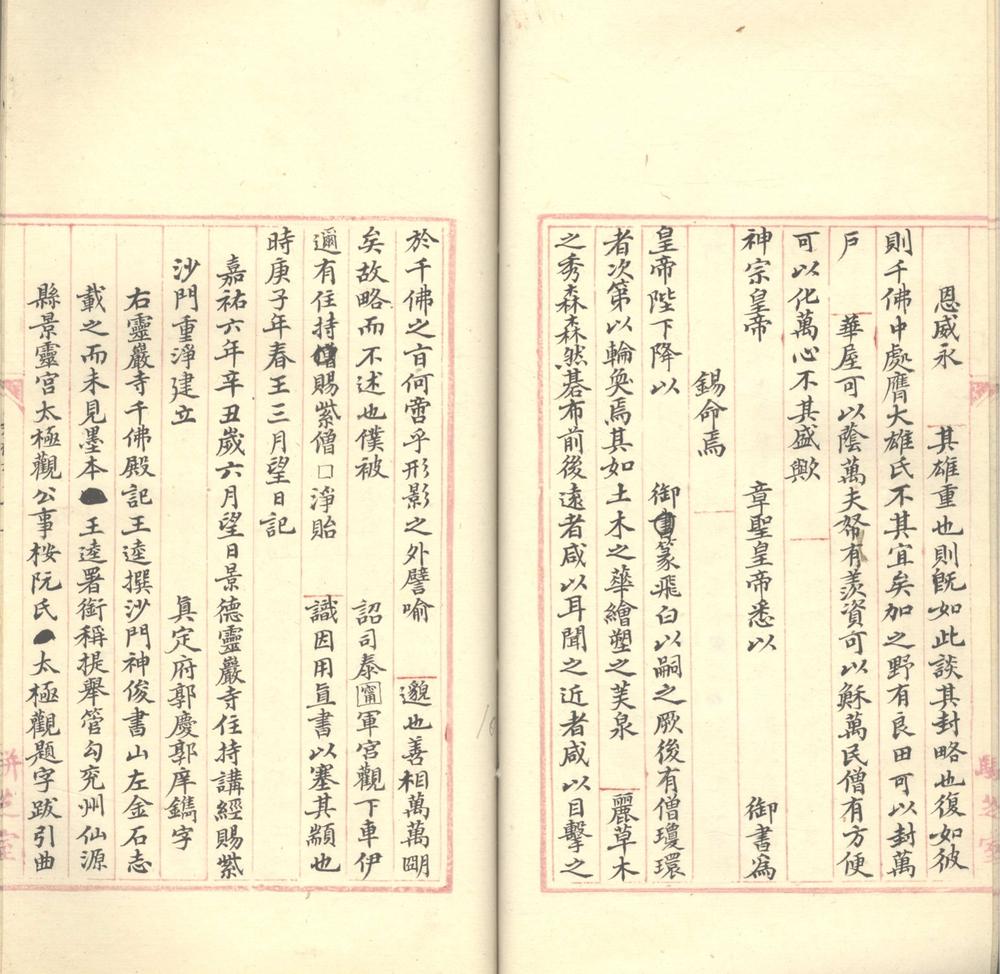 恩威永　其雄重也則旣如此談其封略也復如彼
則千佛中處膺大雄氏不其宜矣加之野有良田可以封萬
戶　華屋可以蔭萬夫帑有羨資可以穌萬民僧有方便
可以化萬心不其盛歟
錫命焉
神宗皇帝　章聖皇帝悉以　御書爲
皇帝陛下降以　御書篆飛白以嗣之厥後有僧瓊環
者次第以輪奐焉其如土木之華繪塑之美泉　麗草木
之秀森森然碁布前後遠者咸以耳聞之近者咸以目擊之
於千佛之㫖何啻乎形影之外譬喻　邈也善相萬萬朙
矣故略而不述也僕被　詔司泰甯軍宮觀下車伊
邇有住持僧賜紫僧□淨貽　識因用直書以塞其顓也
時庚子年春王三月望日記
嘉祐六年辛丑歲六月望日景德靈巖寺住持講經賜紫
沙門重淨建立　眞定府郭慶郭庠鐫字
右靈巖寺千佛殿記王逵撰沙門神俊書山左金石志
載之而未見墨本　王逵署銜稱提舉管勾兖州仙源
縣景靈宮太極觀公事桉阮氏　太極觀題字跋引曲